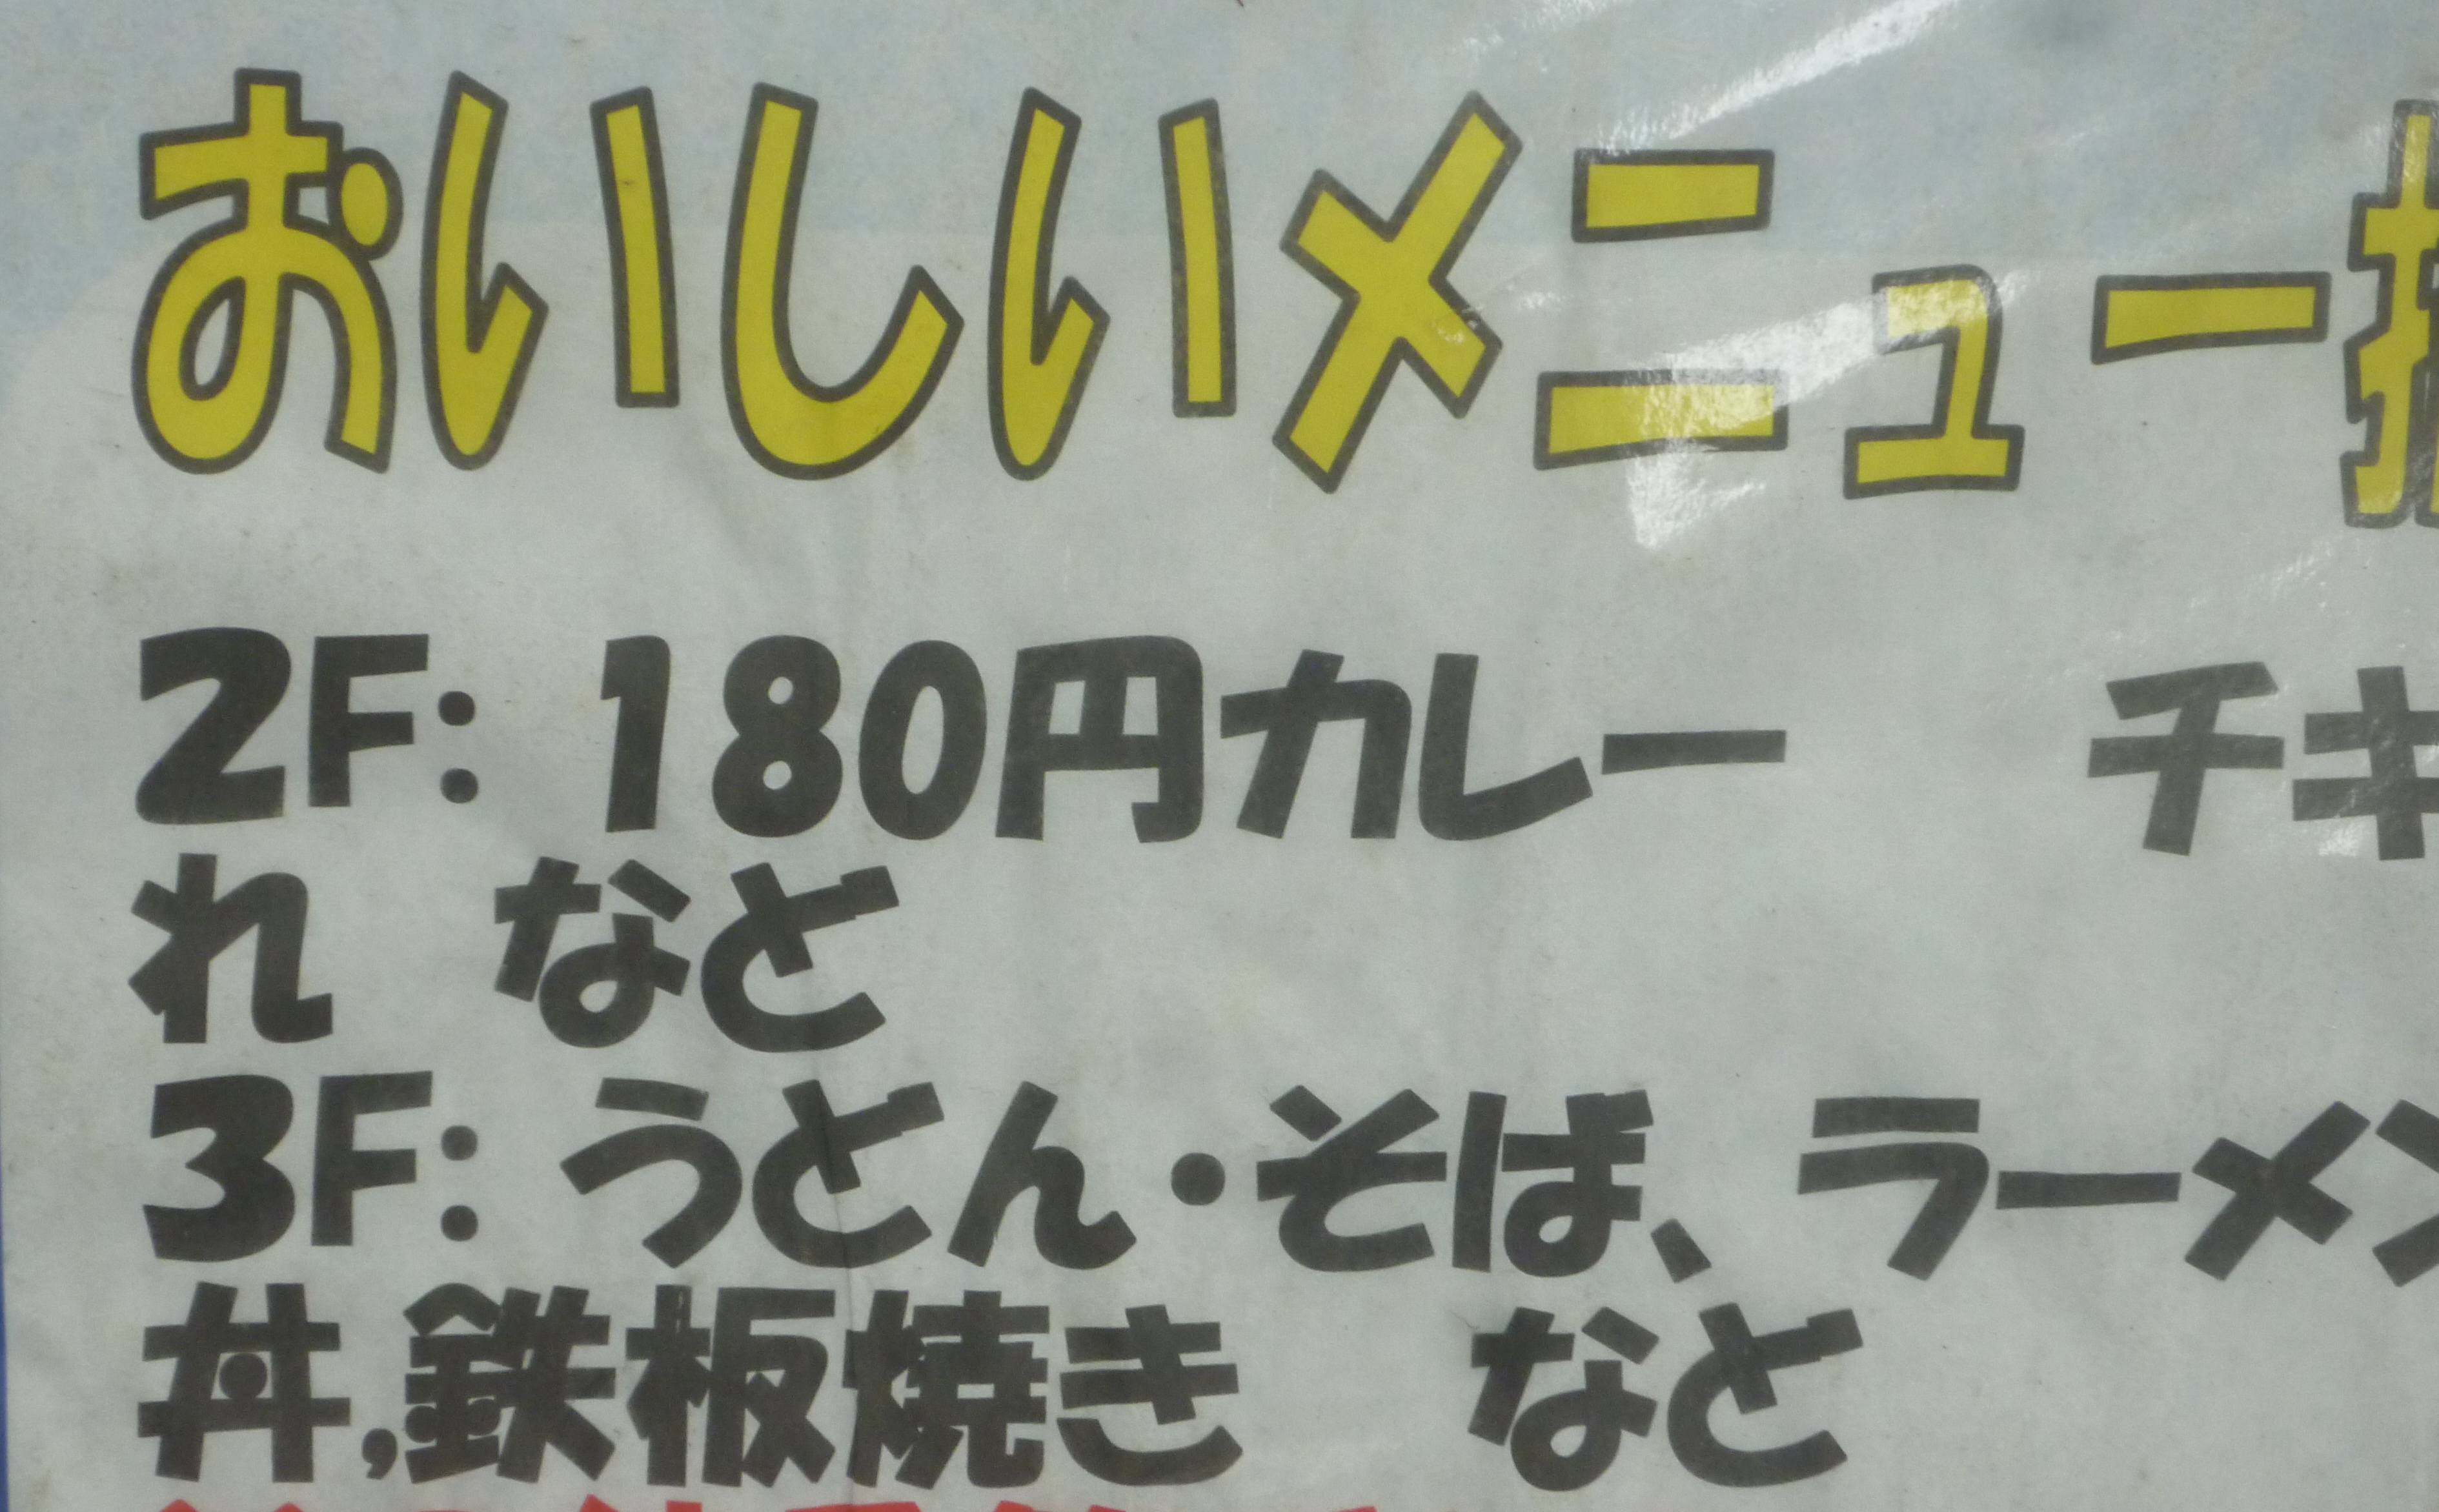 おいしいメニュー
2F: 180円カレー　チキ
れ　など
3F: うどん・そば、ラーメン
丼,鉄板焼き　など